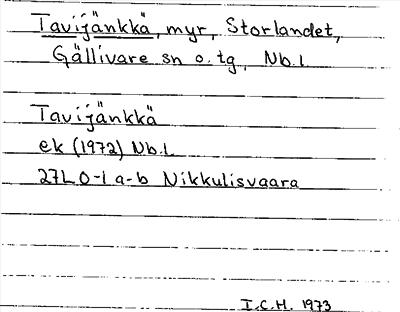 Tavijänkkä, myr, Storlandet,
Gällivare sn o. tg, Nb.l
Tavijänkkä
ek (1972) Nb.l
27L 0-1 a-b Nikkulisvaara
I.C.H. 1973